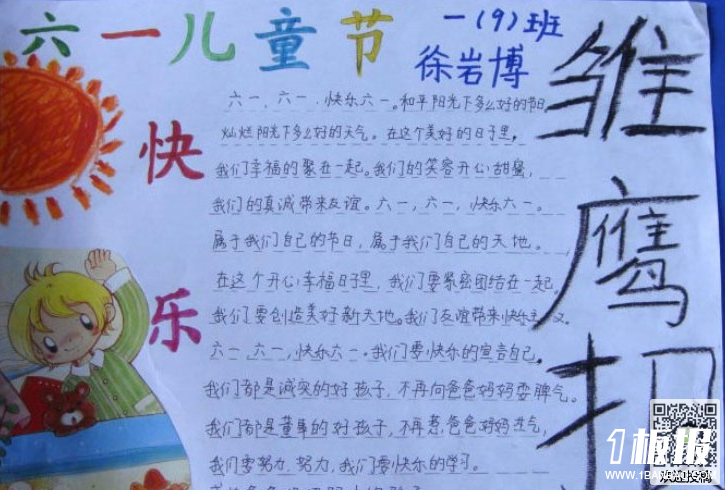 六一儿童节
一(9)班
徐岩博
快
乐
雏
鹰
六一,六一,快乐六一。和平阳光下多么好的节日,
灿烂阳光下多么好的天气。在这个美好的日子里,
我们幸福的聚在一起。我们的笑容开心甜蜜,
我们的真诚带来友谊。六一,六一,快乐六一。
属于我们自己的节日,属于我们自己的天地。
在这个开心幸福日子里,我们要紧密团结在一起,
我们要创造美好新天地。我们友谊带来快乐
六一,六一,快乐六一。我们要快乐的宣言自己。
我们都是诚实的好孩子,不再向爸爸妈妈耍脾气。
我们都是董事的好孩子,不再惹爸爸妈妈生气,
我们要努力,努力,我们要快乐的学习。
1板报
WWW.1BANBAO.COM